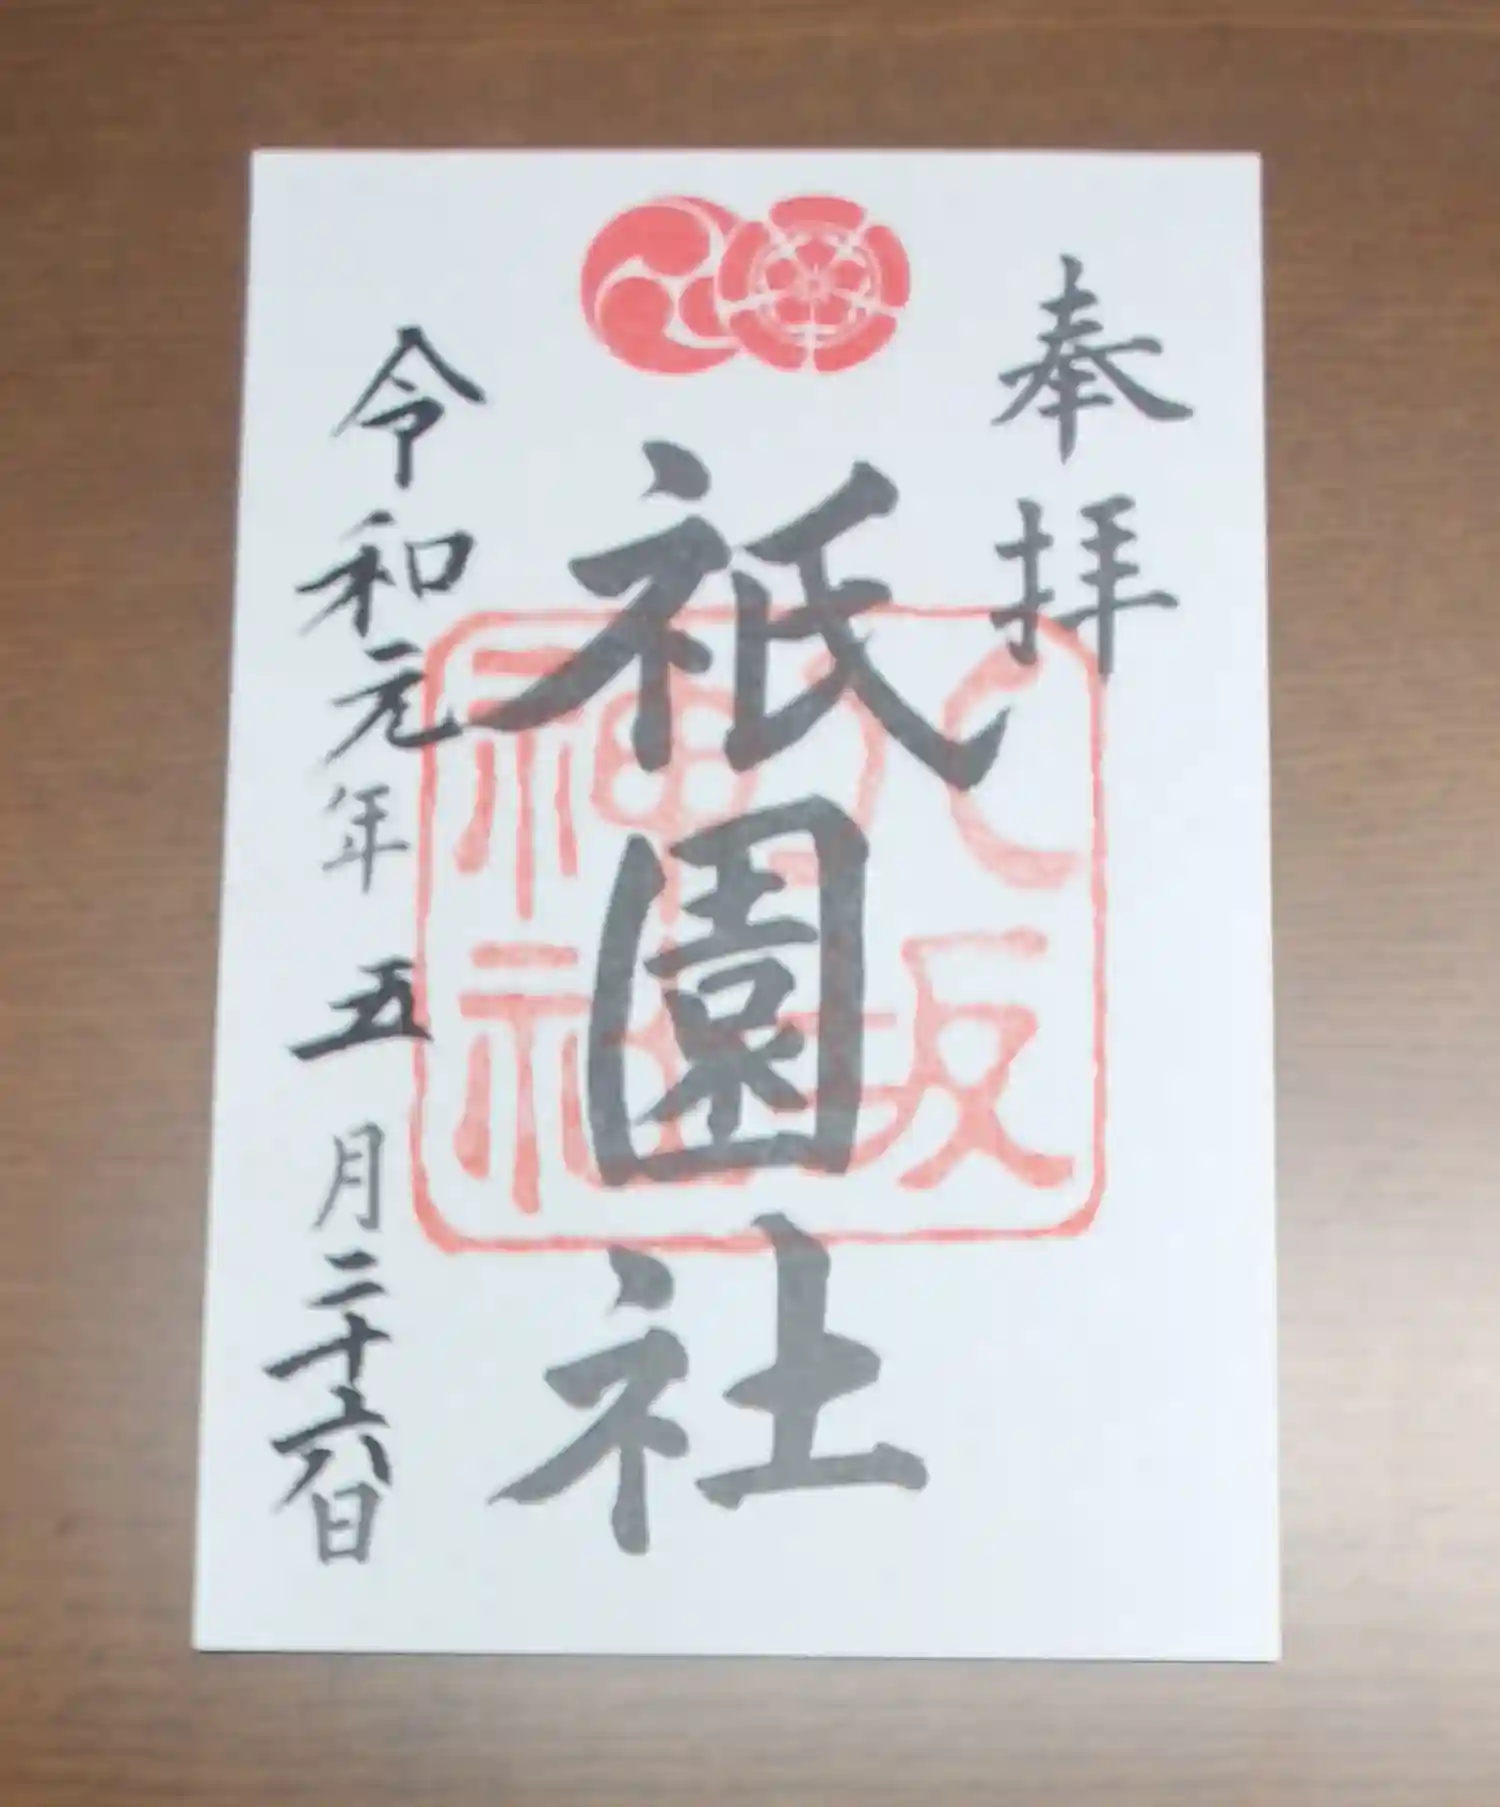 奉拝
祇園社
八坂神社
令和元年 五月二十六日